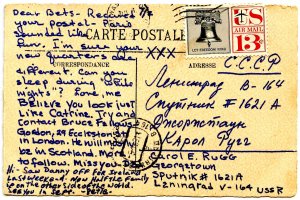 Dear Bets - Received
your postal - Paris
sounded like
fun. I'm sure your
new quarters are
different. Can you
sleep during "white
nights"? Love, me
Believe you look just
like Catrine. Try and
contact Bruce Fallows
Gordon, 29 Eccleston St
London. He will not
be in Scotland. More
to follow. Miss you.
Hi - Saw Danny off for Zealand
last weekend. Now half the family
up on the other side of the world.
See you in Sept.
CARTE POSTALE
CORRESPONDANCE
ADRESSE
XXX
LET FREEDOM RING
US
AIR MAIL
13¢
С.С.С.Р
Ленинград В-164
Спутник #1621А
Джорджтаун
КаролРугг
Carol E. Rugg
Georgetown
Sputnik #1621A
Leningrad V-164 USSR